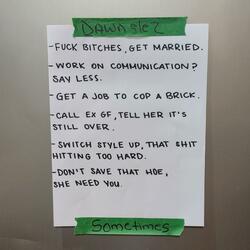 Dawn slez
-FUCK BITCHES, GET MARRIED.
-WORK ON COMMUNICATION?
SAY LESS.
-GET A JOB TO COP A BRICK.
-CALL EX GF, TELL HER IT'S
STILL OVER.
-SWITCH STYLE UP, THAT SHIT
HITTING TOO HARD.
-DON'T SAVE THAT HOE,
SHE NEED YOU.
Sometimes